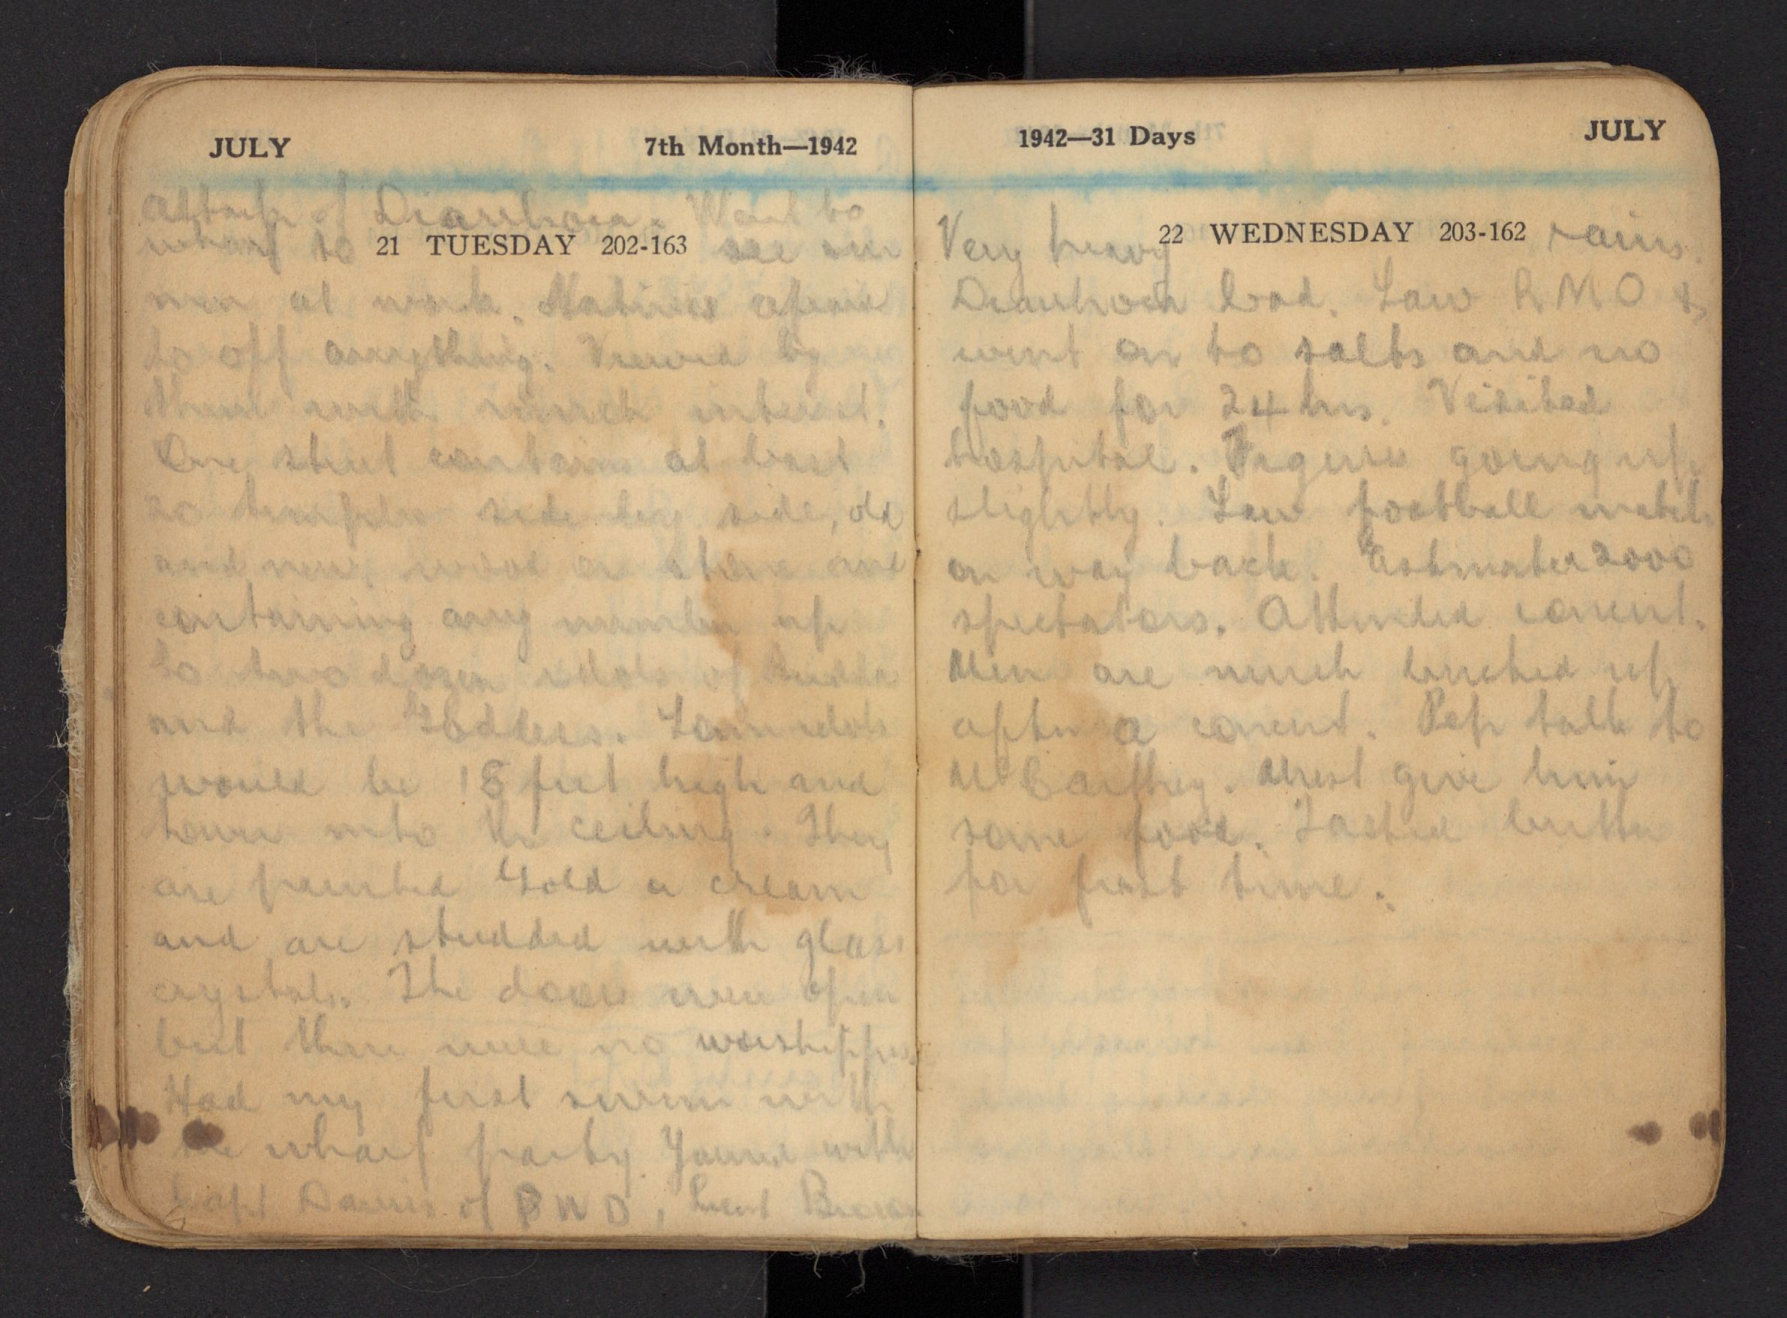 JULY 7th Month—1942
Attack of Diarrhoea. Went to
wharf to 21 TUESDAY 202-163 see our
men at work. Natives afraid
to off anything. Viewed by
them with much interest.
One street contains at least
20 temples side by side, old
and new, wood or stone and
containing any number up
to two dozen idols of Budda
and the Goddess. Some idols
would be 18 feet high and
tower into the ceiling. They
are painted Gold or cream
and are studded with glass
crystals. The doors were open
but there were no worshippers.
Had my first swim with
the wharf party. Yarned with
Capt Davis of PWD, Lieut Brown
1942—31 Days JULY
Very heavy 22 WEDNESDAY 203-162 rains.
Diarrhoea bad. Saw RMO &
went on to salts and no
food for 24 hrs. Visited
hospital. Figures going up
slightly. Saw football match
on way back. Estimated 2000
spectators. Attended concert.
Men are much bucked up
after a concert. Pep talk to
McCarthey. Must give him
some food. Tasted butter
for first time.